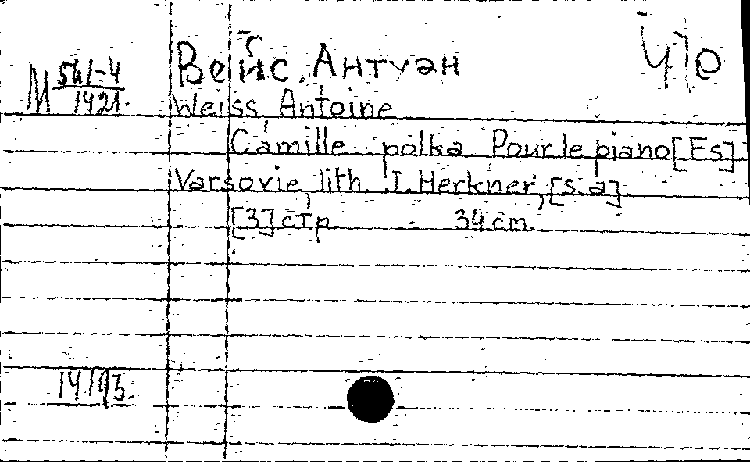 Вейс, Антуан
М 541-4
1421.
Weiss Antoine
Camille polka Pour le piano [Es]
Varsovie, lith. J. Herkner, [s.a]
[3] стр. 34 cm.
14193.